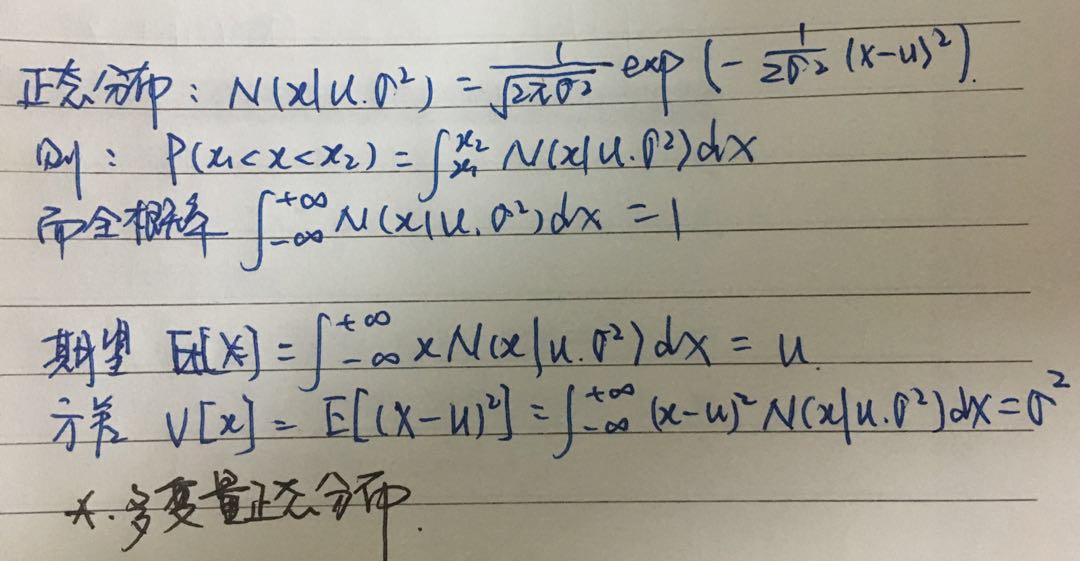 正态分布: N(x|u.σ²) = 1/√(2πσ²) exp(-1/(2σ²) (x-u)²).
则: P(x₁<x<x₂) = ∫_{x₁}^{x₂} N(x|u.σ²)dx
而全概率 ∫_{-∞}^{+∞} N(x|u.σ²)dx = 1
期望 E[X] = ∫_{-∞}^{+∞} x N(x|u.σ²)dx = u.
方差 V[x] = E[(X-u)²] = ∫_{-∞}^{+∞} (x-u)² N(x|u.σ²)dx = σ²
*.多变量正态分布.